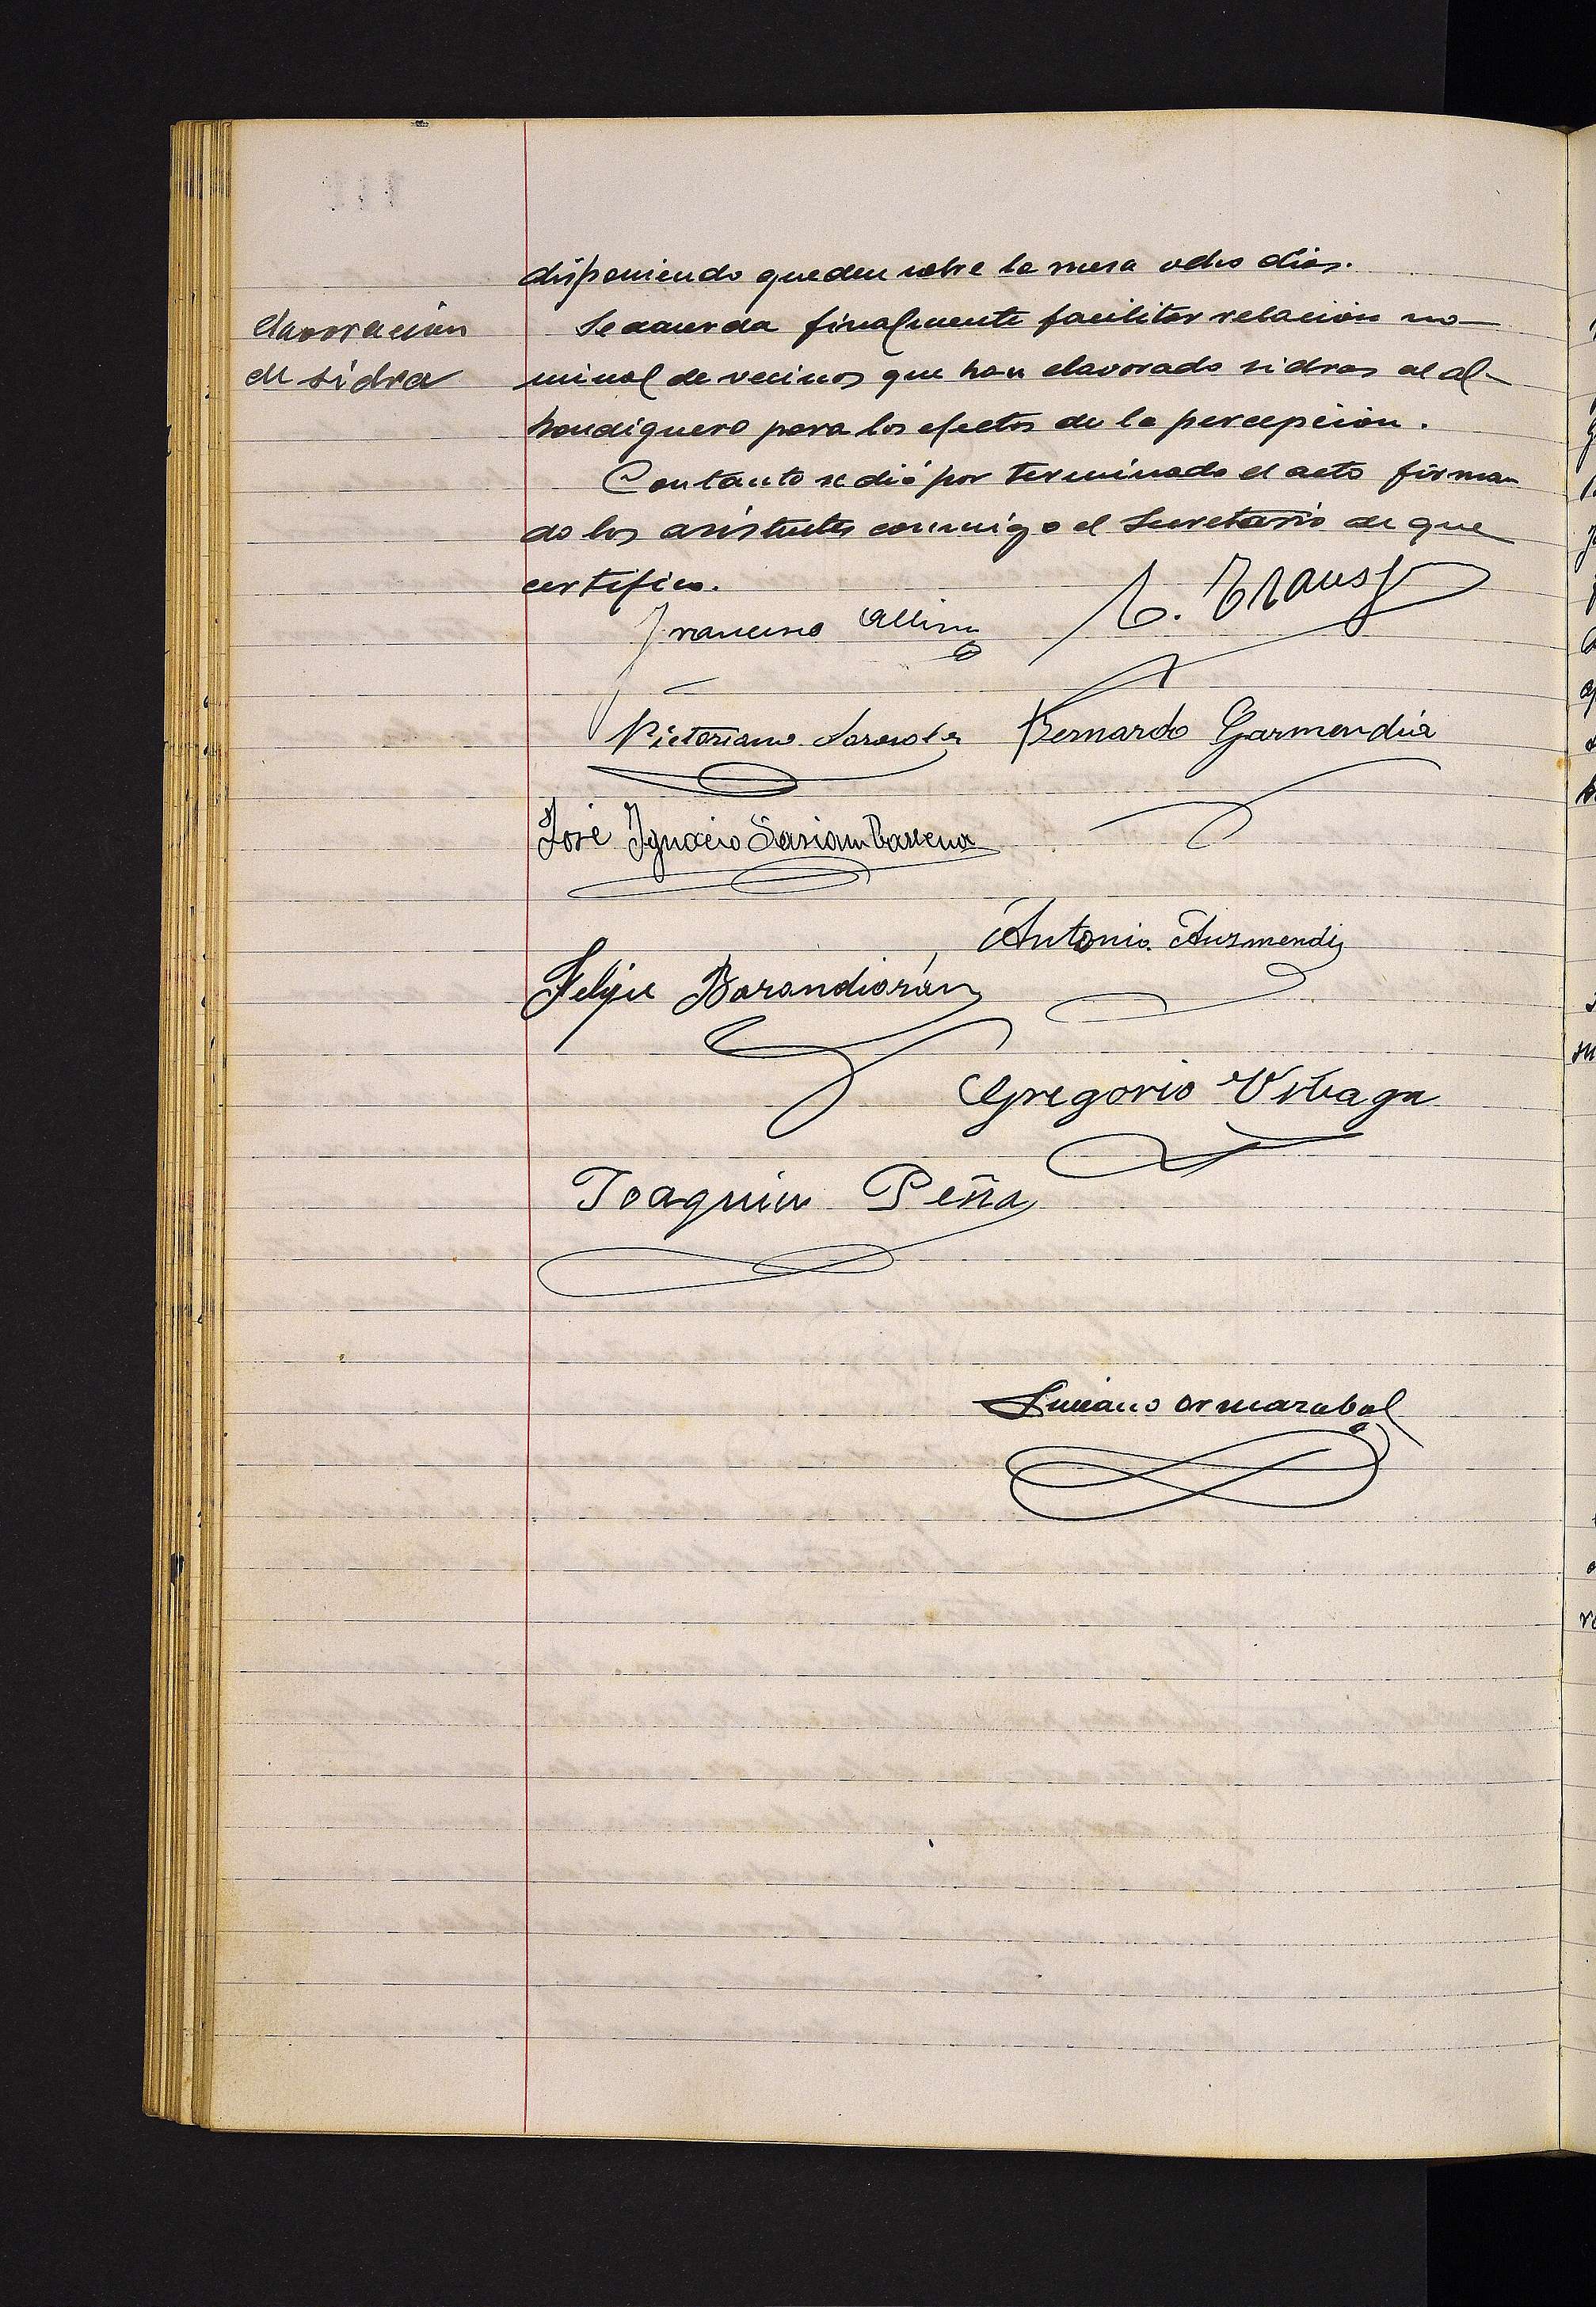 disponiendo queden sobre la mesa ocho dias.
elavoracion
de sidra
Se acuerda finalmente facilitar relación no-
minal de vecinos que han elavorado sidras al al-
hondiguero para los efectos de la percepción.
Con tanto se dió por terminado el acto firman
do los asistentes conmigo el Secretario de que
certifico.
Francisco
Victoriano Sarasola Bernardo Garmendia
José Ignacio Sasiambarrena
Antonio Auzmendi
Felipe Barandiarán
Gregorio
Joaquin Peña
Luciano Ormazabal